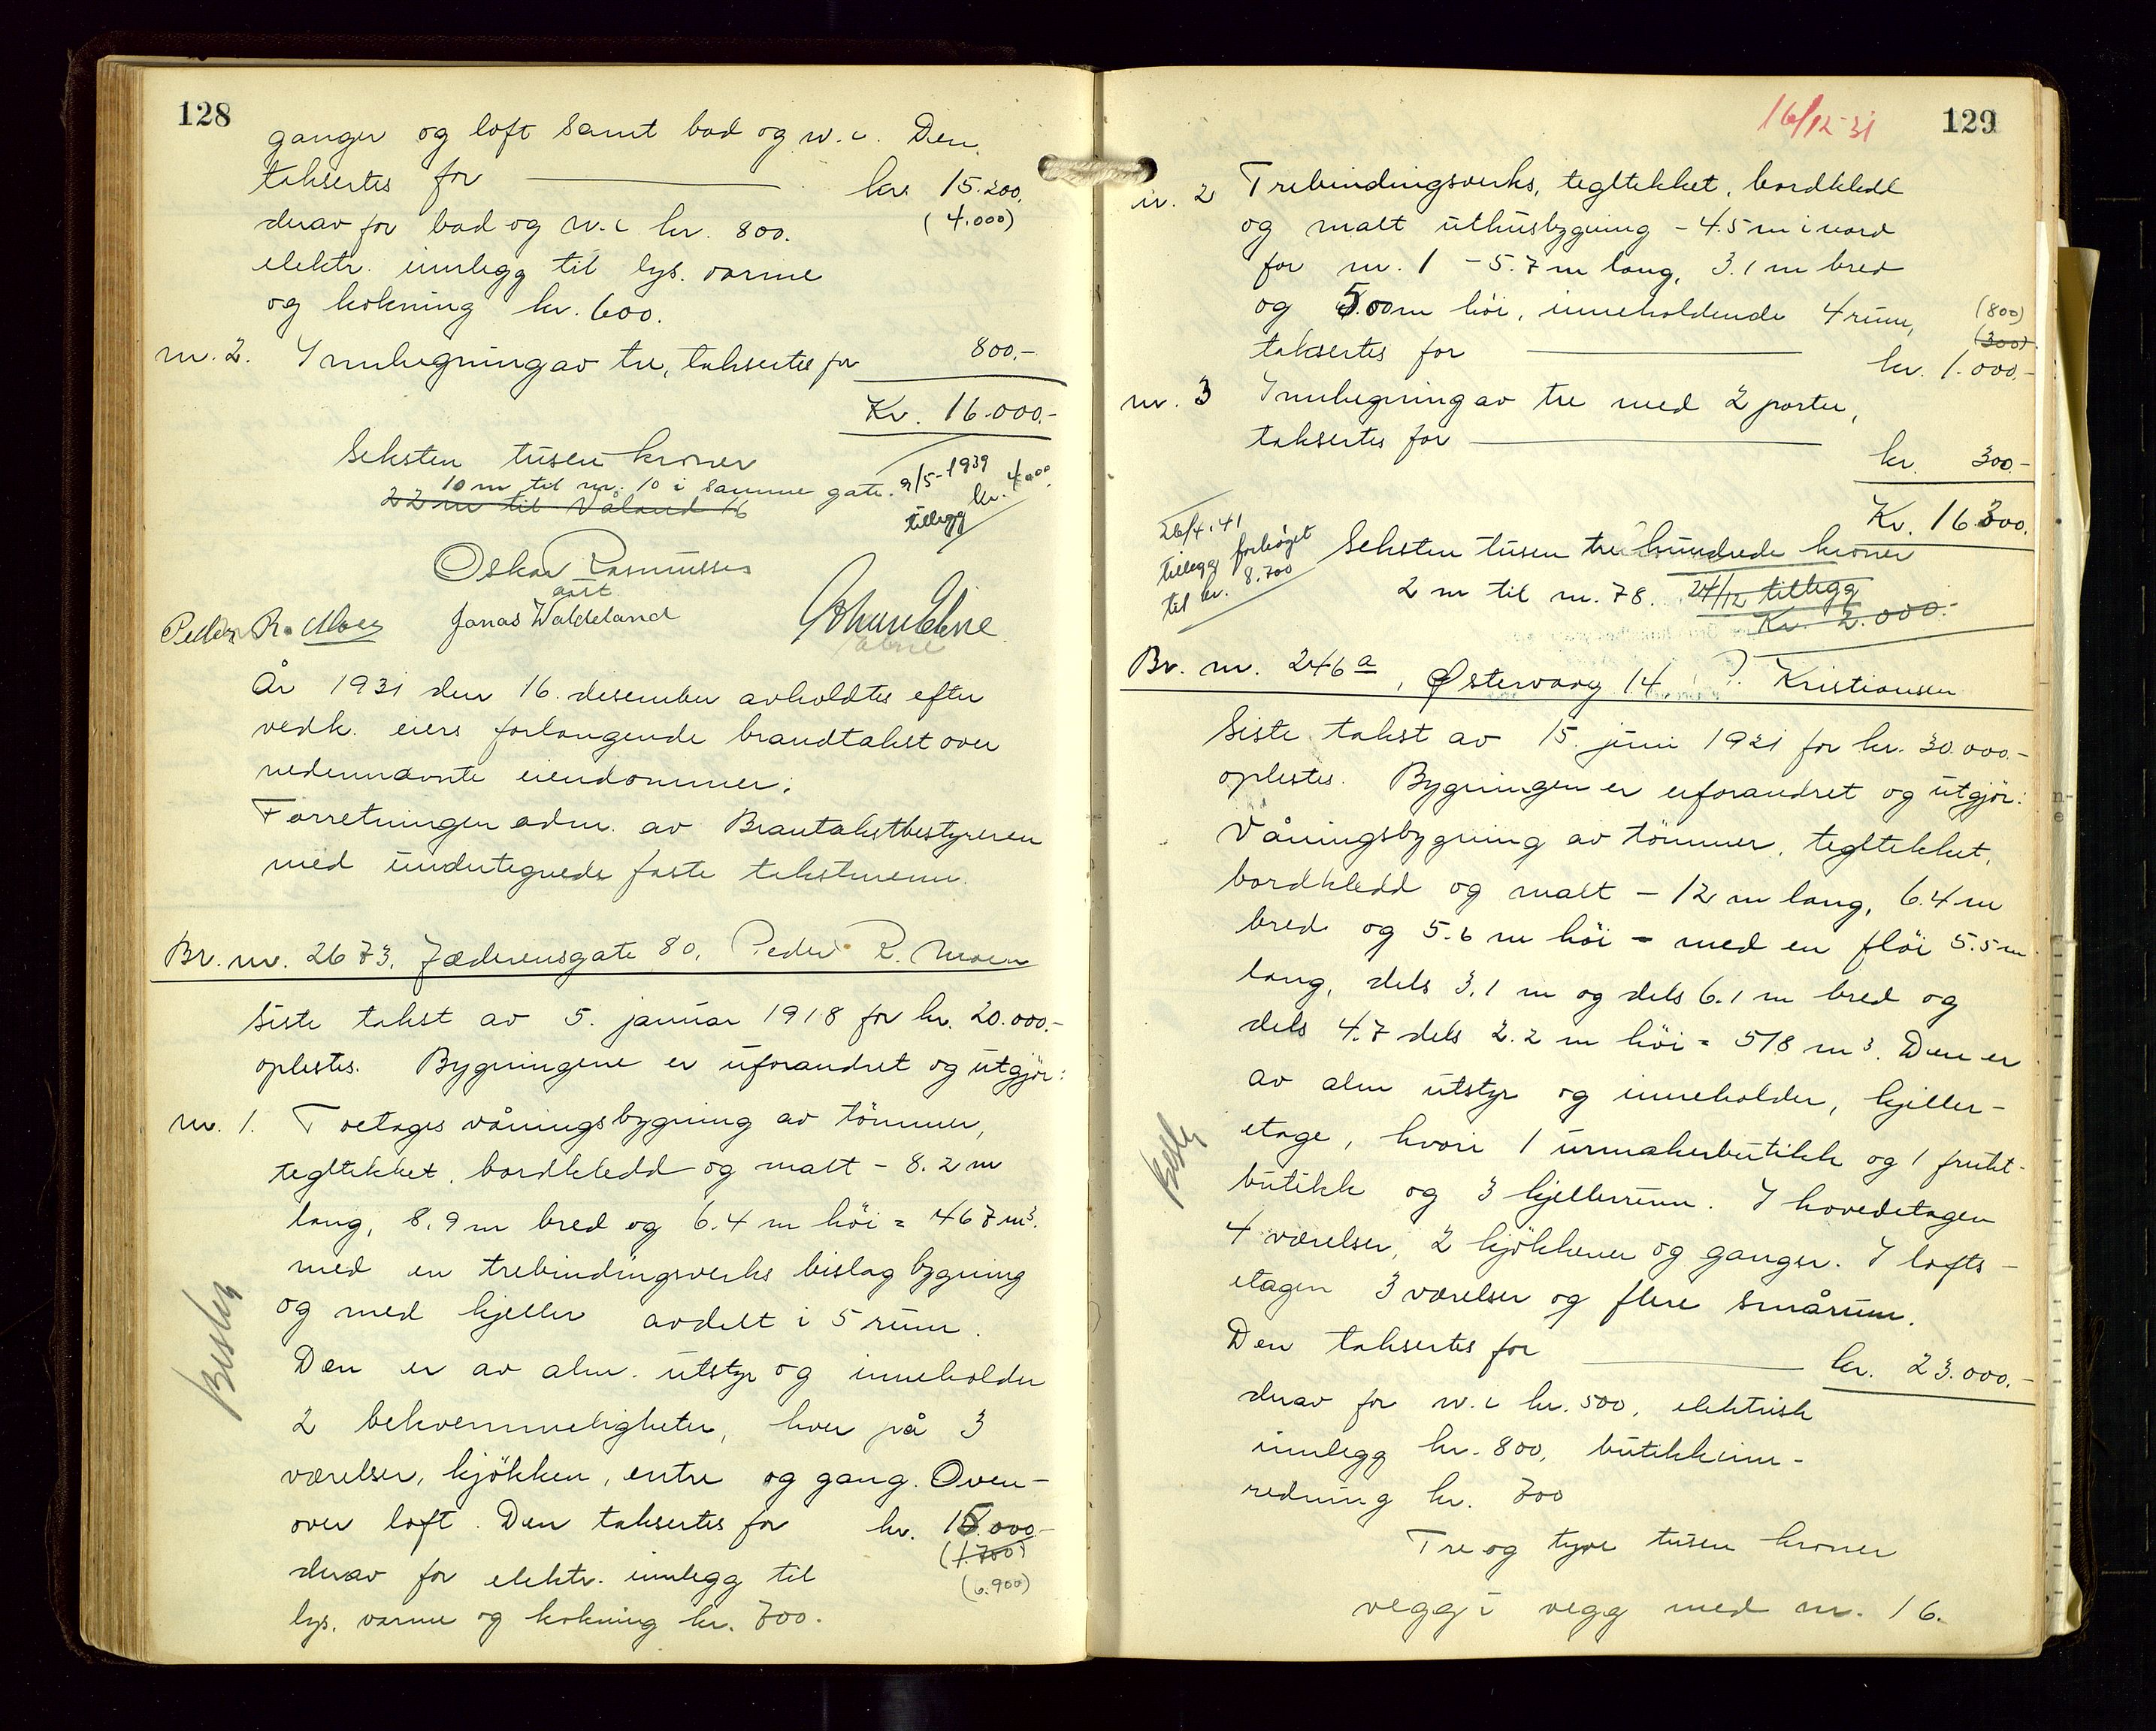 128
ganger og loft samt bad og w.c. Den
taksertes for kr. 15.200.
(4.000)
derav for bad og w.c kr. 800.
elektr. innlegg til lys. varme
og kokning kr. 600.
nr. 2. Innhegning av tre, taksertes for 800.-
Kr. 16.000.-
Seksten tusen kroner
10 m til nr. 10 i samme gate. 9/5-1939
22 m til Våland 16
tillegg kr. 4000.
Oskar Rasmussen
Peder R. Moen Jonas Waldeland
År 1931 den 16. desember avholdtes efter
vedk. eiers forlangende brandtakst over
nedennævnte eiendommer:
Forretningen adm. av Brantakstbestyreren
med undertegnede faste takstmenn.
Br. nr. 2673, Jæderensgate 80, Peder R. Moen
Siste takst av 5. januar 1918 for kr. 20.000.-
oplestes. Bygningene er uforandret og utgjør:
nr. 1. Toetages våningsbygning av tömmer,
tegltekket, bordkledd og malt - 8.2 m
lang, 8.9 m bred og 6.4 m höi = 467 m³.
med en trebindingsverks bislag bygning
og med kjeller avdelt i 5 rum.
Den er av alm. utstyr og inneholder
2 bekvemmeligheter, hver på 3
værelser, kjökken, entre og gang. Oven-
over loft. Den taksertes for kr. 15.000.-
(1.700)
derav for elektr. innlegg til
(6.900)
lys, varme og kokning kr. 700.
Besby
16/12-31
129
nr. 2 Trebindingsverks, tegltekket, bordkledt
og malt uthusbygning - 4.5 m i nord
for nr. 1 - 5.7 m lang, 3.1 m bred
og 5.00 m höi, inneholdende 4 rum,
(800)
(300)
taksertes for kr. 1.000.-
nr. 3 Innhegning av tre med 2 porter,
taksertes for kr. 300.-
Kr. 16.300.
26/4.41
tillegg forhöiet
til kr. 8.700
Seksten tusen tre hundrede kroner
2 m til nr. 78. 24/12 tillegg
Kr. 2.000.-
Br. nr. 246a, Østervaag 14, P. Kristiansen
Siste takst av 15. juni 1921 for kr. 30.000.-
oplestes. Bygningen er uforandret og utgjör:
Våningsbygning av tömmer, tegltekket,
bordkledd og malt - 12 m lang, 6.4 m
bred og 5.6 m höi - med en flöi 5.5 m
lang, dels 3.1 m og dels 6.1 m bred og
dels 4.7 dels 2.2 m höi = 578 m³. Den er
av alm utstyr og inneholder, kjeller-
etage, hvori 1 urmakerbutikk og 1 frukt-
butikk og 3 kjellerrum. I hovedetagen
4 værelser, 2 kjökkener og ganger. I lofts-
etagen 3 værelser og flere smårum.
Den taksertes for kr. 23.000.-
derav for w.c kr. 500, elektrisk
innlegg kr. 800, butikkinn-
redning kr. 700
Tre og tyve tusen kroner
vegg i vegg med nr. 16.
Besby